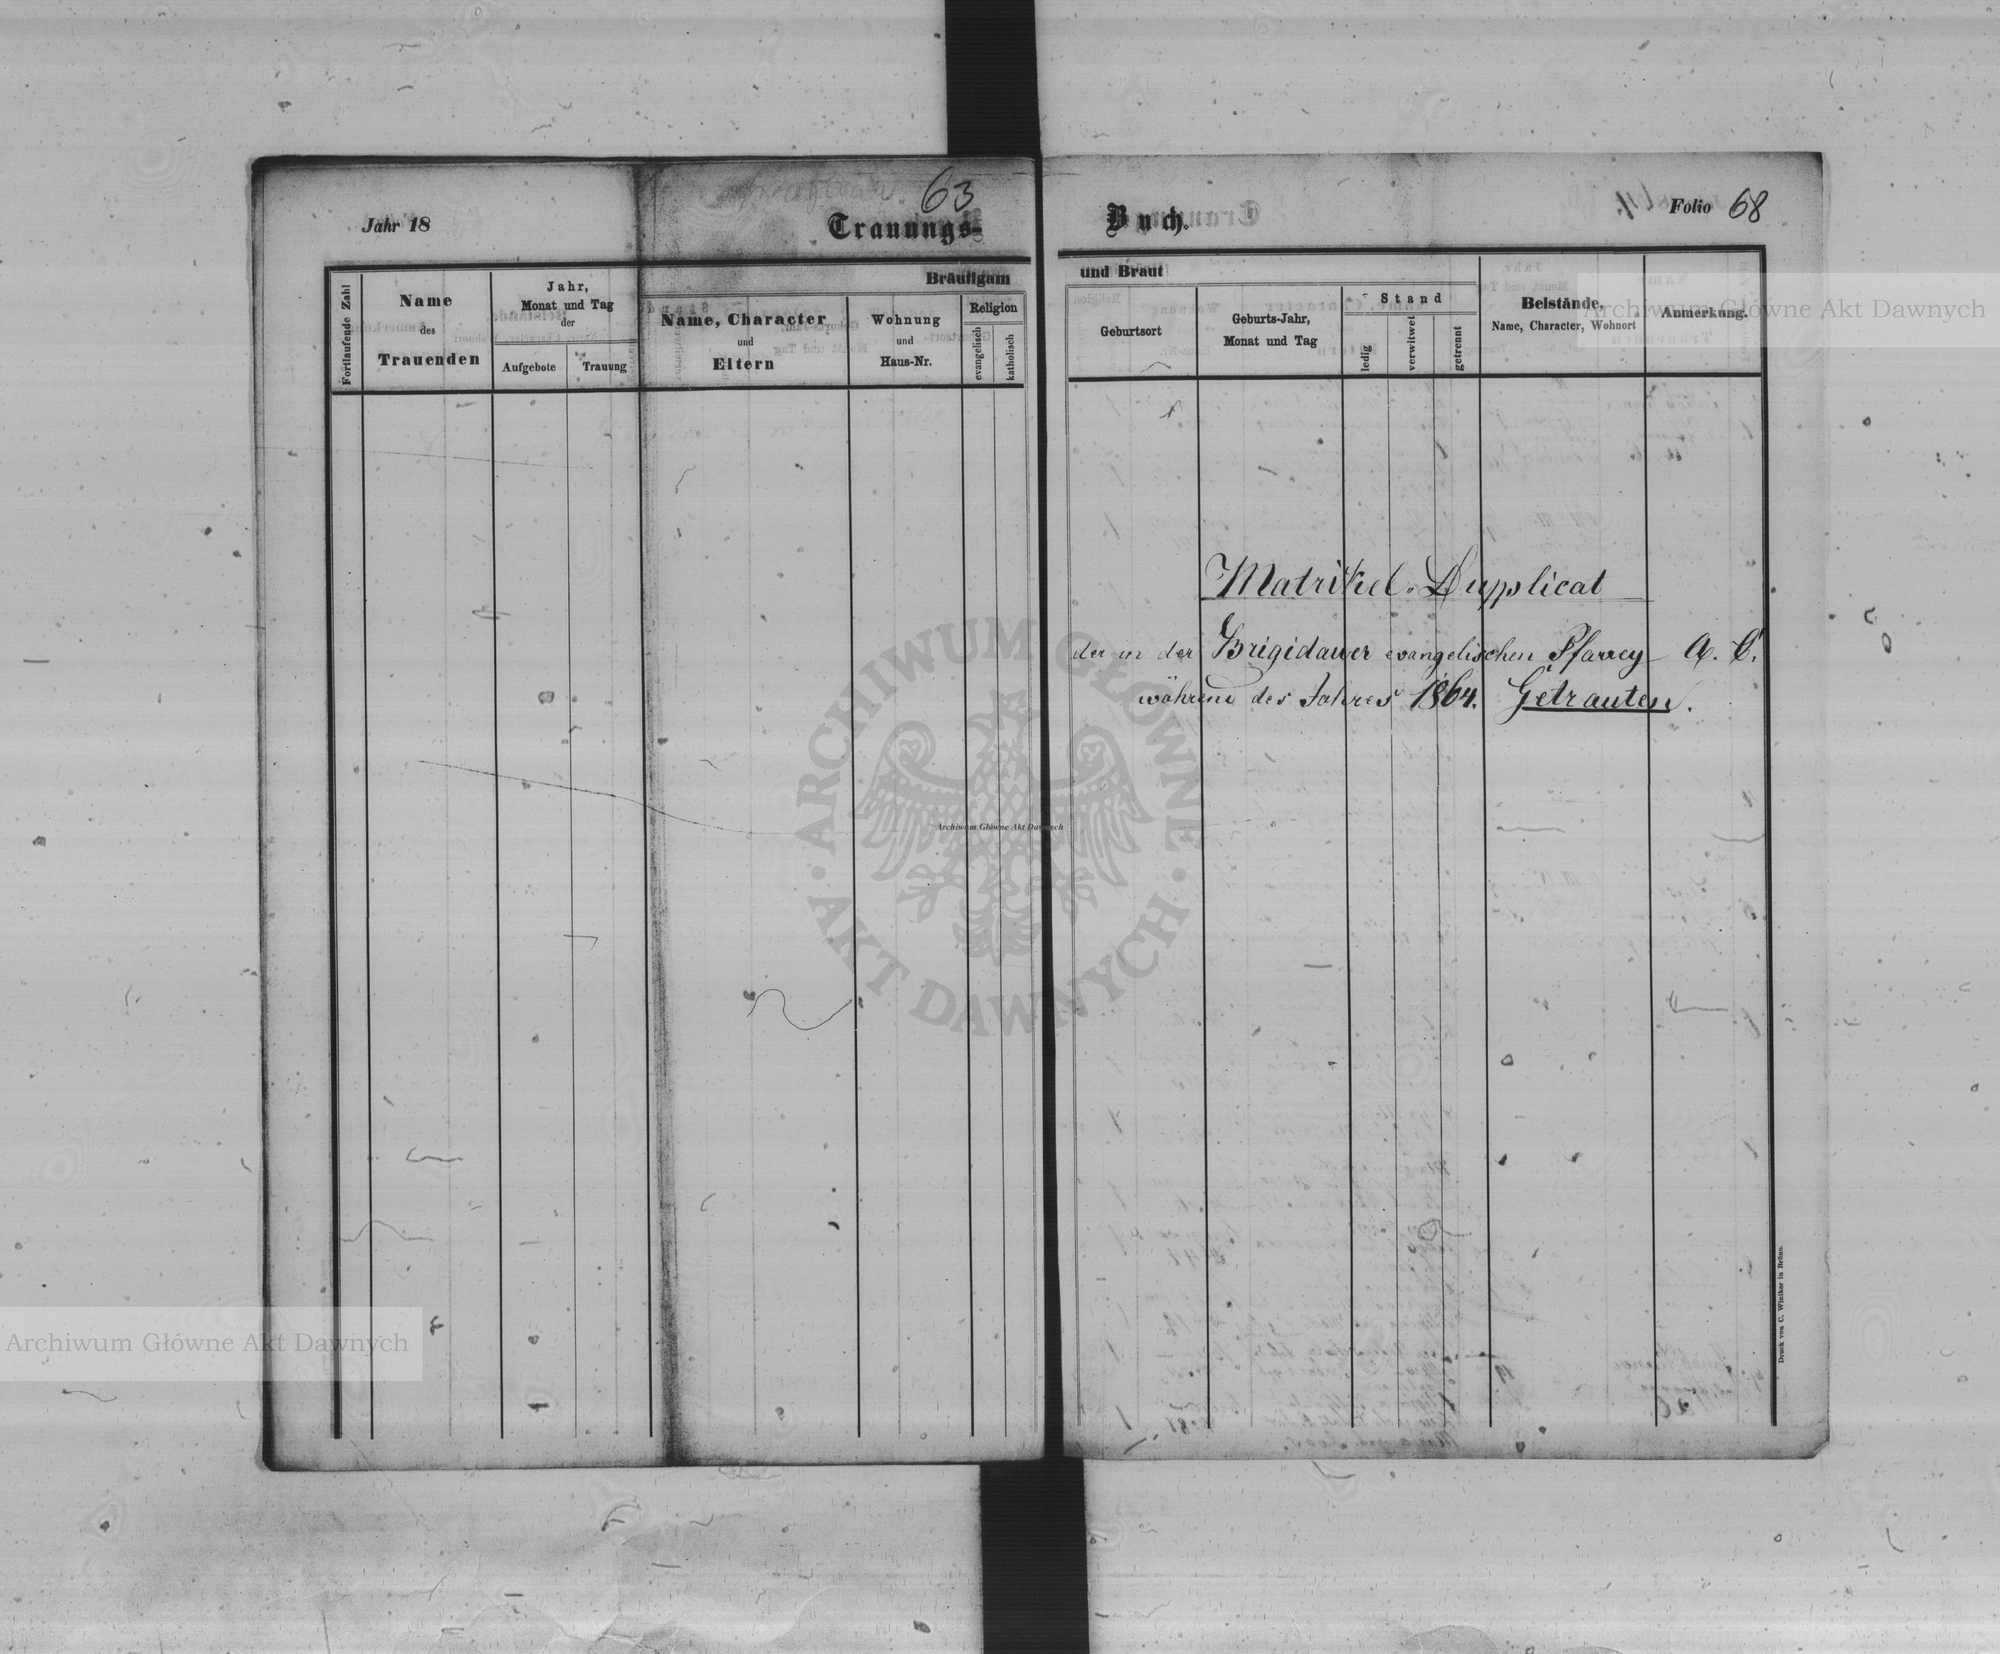 63
Jahr 18
Trauungs-
Buch.
Folio 68
Fortlaufende Zahl
Name
des
Trauenden
Jahr,
Monat und Tag
der
Aufgebote
Trauung
Bräutigam
Name, Character
und
Eltern
Wohnung
und
Haus-Nr.
Religion
evangelisch
katholisch
und Braut
Geburtsort
Geburts-Jahr,
Monat und Tag
Stand
ledig
verwitwet
getrennt
Beistände,
Name, Character, Wohnort
Anmerkung.
Archiwum Główne Akt Dawnych
Matrikel-Dupplicat
der in der Brigidauer evangelischen Pfarrey A. C.
während des Jahres 1864. Getrauten.
ARCHIWUM GŁÓWNE
AKT DAWNYCH
Archiwum Główne Akt Dawnych
Archiwum Główne Akt Dawnych
Druck von C. Winiker in Brünn.